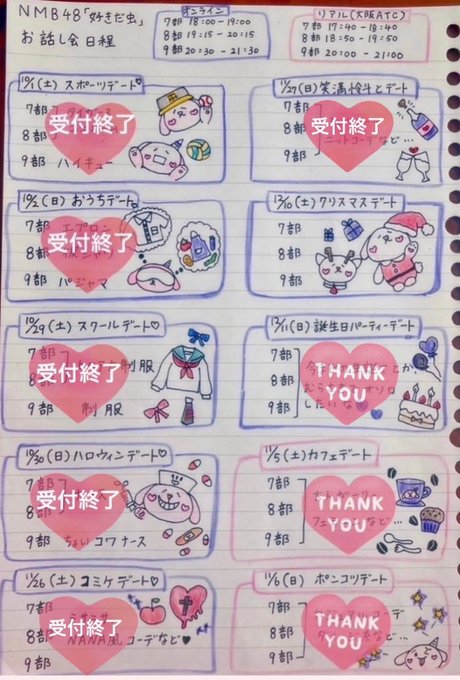 NMB48「好きだ虫」
お話し会日程
オンライン
7部 18:00 - 19:00
8部 19:15 - 20:15
9部 20:30 - 21:30
リアル(大阪ATC)
7部 17:40 - 18:40
8部 18:50 - 19:50
9部 20:00 - 21:00
10/1(土) スポーツデート♡
7部
8部
9部 ハイキュー
受付終了
10/2(日) おうちデート♡
7部 エプロン
8部
9部 パジャマ
受付終了
10/29(土) スクールデート♡
7部
8部 制服
9部 制服
受付終了
10/30(日) ハロウィンデート♡
7部
8部
9部 ちょいコワナース
受付終了
11/26(土) コミケデート♡
7部
8部 NANA風コーデなど♥
9部
受付終了
11/27(日) 笑満怜斗とデート
7部
8部 ニットコーデなど…
9部
受付終了
12/10(土) クリスマスデート
7部
8部
9部
12/11(日) 誕生日パーティーデート
7部
8部
9部 したいな
THANK
YOU
11/5(土) カフェデート
7部
8部 など…
9部
THANK
YOU
11/6(日) ポンコツデート
7部
8部
9部
THANK
YOU